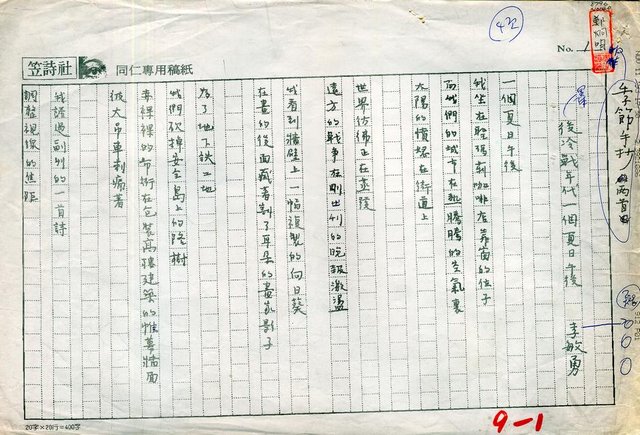 422
No. 1
鄭炯明
笠詩社
同仁專用稿紙
後冷戰年代一個夏日午後
李敏勇
一個夏日午後
我坐在聖瑪莉咖啡店靠窗的位子
而我們的城市在熱騰騰的空氣裏
太陽的憤怒在街道上
世界彷彿正在蒸發
遠方的戰爭在剛出刊的晚報激盪
我看到牆壁上一幅複製的向日葵
在畫的後面藏著割了耳朵的畫家影子
為了地下鉄工地
我們砍掉安全島上的路樹
赤裸裸的市街在包裝高樓建築的帷幕牆面
被大吊車刺痛著
我經過副刊的一首詩
調整視線的焦距
20字×20行=400字
9-1